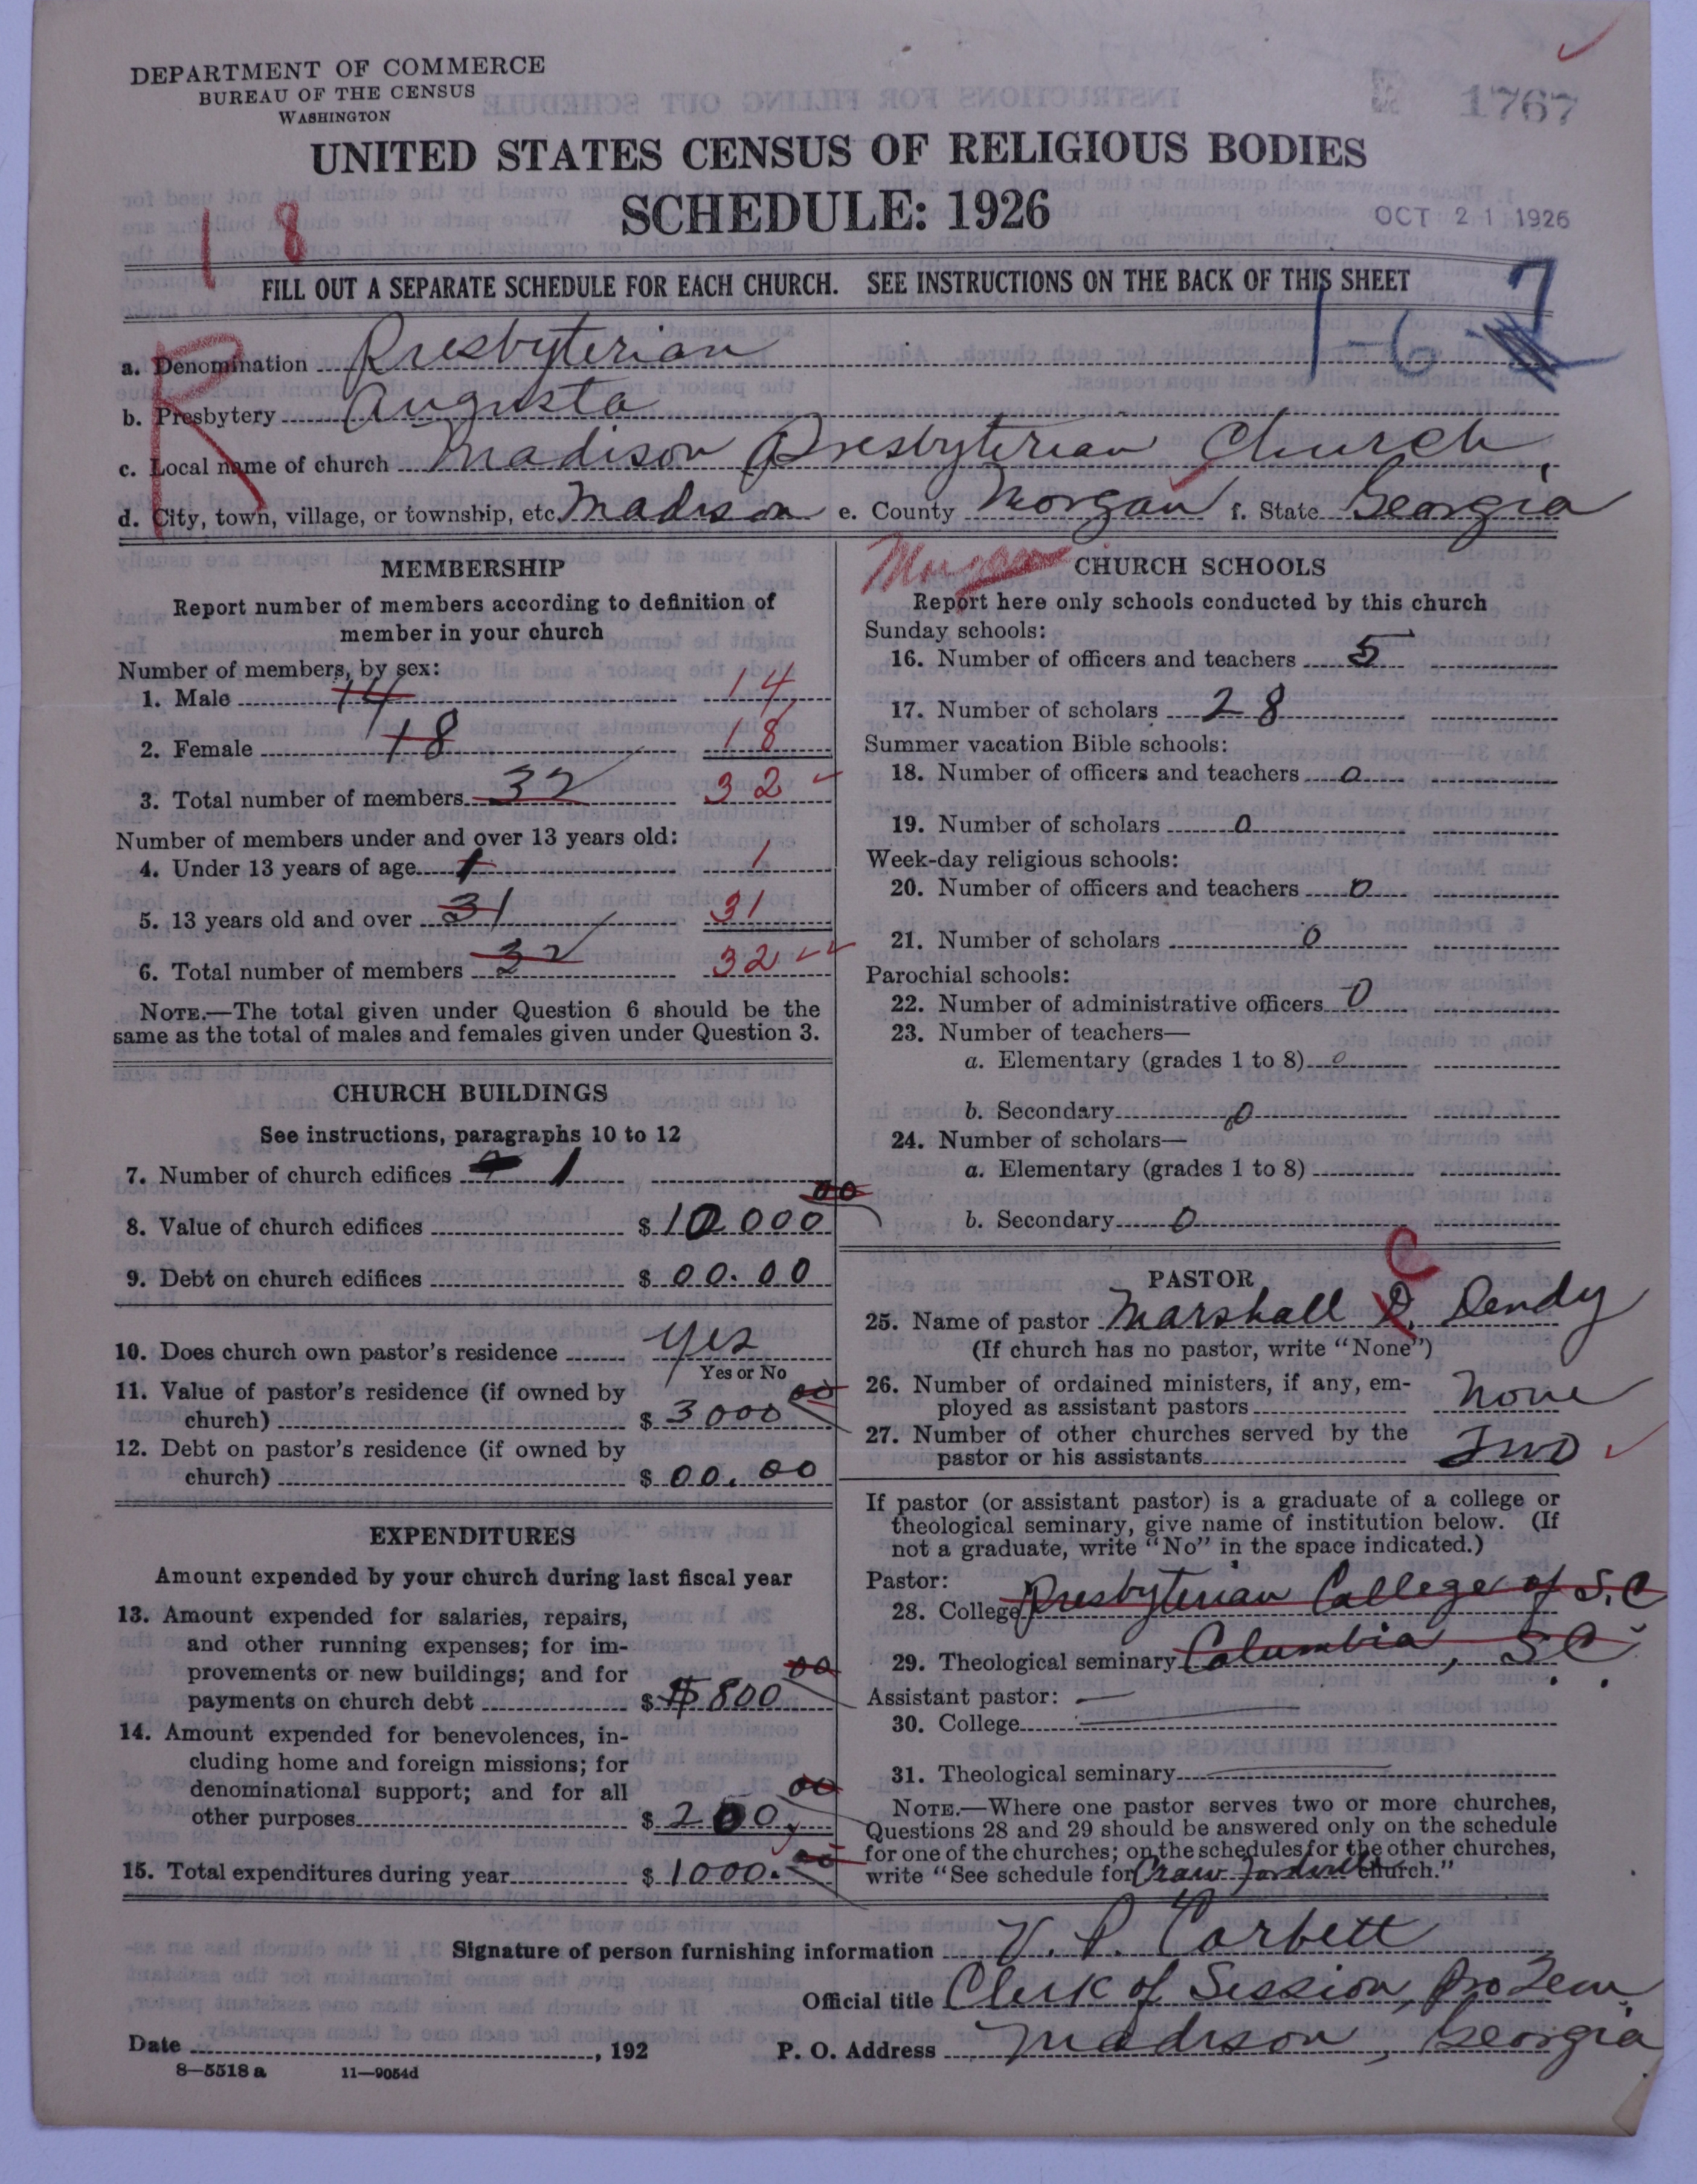 DEPARTMENT OF COMMERCE
BUREAU OF THE CENSUS
WASHINGTON
1767
UNITED STATES CENSUS OF RELIGIOUS BODIES
SCHEDULE: 1926
OCT 21 1926
1 8
FILL OUT A SEPARATE SCHEDULE FOR EACH CHURCH. SEE INSTRUCTIONS ON THE BACK OF THIS SHEET
1-6-7
R
a. Denomination Presbyterian
b. Presbytery Augusta
c. Local name of church Madison Presbyterian Church
d. City, town, village, or township, etc. Madison e. County Morgan f. State Georgia
MEMBERSHIP
Report number of members according to definition of
member in your church
Number of members, by sex:
1. Male 14 14
2. Female 18 18
3. Total number of members 32 32
Number of members under and over 13 years old:
4. Under 13 years of age 1 1
5. 13 years old and over 31 31
6. Total number of members 32 32
NOTE.—The total given under Question 6 should be the
same as the total of males and females given under Question 3.
CHURCH BUILDINGS
See instructions, paragraphs 10 to 12
7. Number of church edifices 1
8. Value of church edifices $ 10000 00
9. Debt on church edifices $ 00.00
10. Does church own pastor's residence Yes
Yes or No
11. Value of pastor's residence (if owned by
church) $ 3000 00
12. Debt on pastor's residence (if owned by
church) $ 00.00
EXPENDITURES
Amount expended by your church during last fiscal year
13. Amount expended for salaries, repairs,
and other running expenses; for im-
provements or new buildings; and for
payments on church debt $ $800 00
14. Amount expended for benevolences, in-
cluding home and foreign missions; for
denominational support; and for all
other purposes $ 200. 00
15. Total expenditures during year $ 1000. 00
Morgan
CHURCH SCHOOLS
Report here only schools conducted by this church
Sunday schools:
16. Number of officers and teachers 5
17. Number of scholars 28
Summer vacation Bible schools:
18. Number of officers and teachers 0
19. Number of scholars 0
Week-day religious schools:
20. Number of officers and teachers 0
21. Number of scholars 0
Parochial schools:
22. Number of administrative officers 0
23. Number of teachers—
a. Elementary (grades 1 to 8) 0
b. Secondary 0
24. Number of scholars—
a. Elementary (grades 1 to 8)
b. Secondary 0
PASTOR
C
25. Name of pastor Marshall D. Dendy
(If church has no pastor, write "None")
26. Number of ordained ministers, if any, em-
ployed as assistant pastors None
27. Number of other churches served by the
pastor or his assistants Two
If pastor (or assistant pastor) is a graduate of a college or
theological seminary, give name of institution below. (If
not a graduate, write "No" in the space indicated.)
Pastor:
28. College Presbyterian College of S.C
29. Theological seminary Columbia, S.C.
Assistant pastor: —
30. College
31. Theological seminary
NOTE.—Where one pastor serves two or more churches,
Questions 28 and 29 should be answered only on the schedule
for one of the churches; on the schedules for the other churches,
write "See schedule for Crawfordville church."
Signature of person furnishing information V. P. Corbett
Official title Clerk of Session, Pro Tem.
Date , 192 P. O. Address Madison, Georgia
8—5518 a 11—9054d